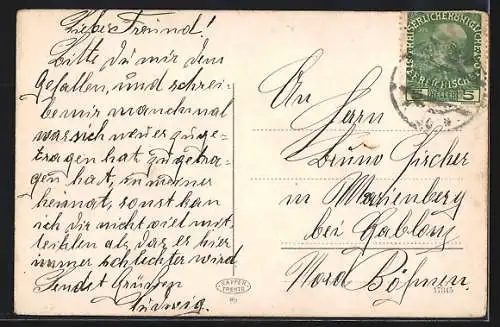 Liebe Freund!
Bitte du mir dem
gefallen, und schrei-
be mir manchmal
was sich neues zuge-
tragen hat zugetra-
gen hat, in meiner
heimat, sonst kan
ich dir nicht viel mit-
teihlen als, daz es hier
immer schlechter wird
Sendet Grüssen
Ludwig.
KAISERLICHE KÖNIGLICHE
ÖSTERREICHISCHE
HELLER 5
An Herrn
Bruno Fischer
in Marienberg
bei Gablonz
Nord Böhmen.
17345